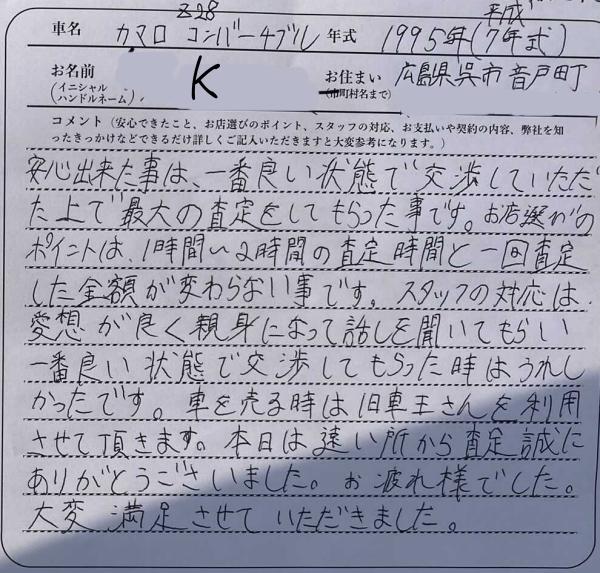 Z28
平成
車名 カマロ コンバーチブル 年式 1995年(7年式)
お名前 K お住まい 広島県呉市音戸町
(イニシャル
ハンドルネーム) (市町村名まで)
コメント(安心できたこと、お店選びのポイント、スタッフの対応、お支払いや契約の内容、弊社を知
ったきっかけなどできるだけ詳しくご記入いただきますと大変参考になります。)
安心出来た事は、一番良い状態で交渉していただ
た上で最大の査定をしてもらった事です。お店選びの
ポイントは、1時間い2時間の査定時間と一回査定
した金額が変わらない事です。スタッフの対応は
愛想が良く親身になって話しを聞いてもらい
一番良い状態で交渉してもらった時はうれし
かったです。車を売る時は旧車王さんを利用
させて頂きます。本日は遠い所から査定誠に
ありがとうございました。お疲れ様でした。
大変満足させていただきました。